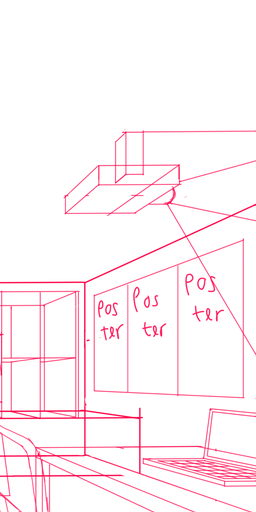 Pos
ter
Pos
ter
Pos
ter